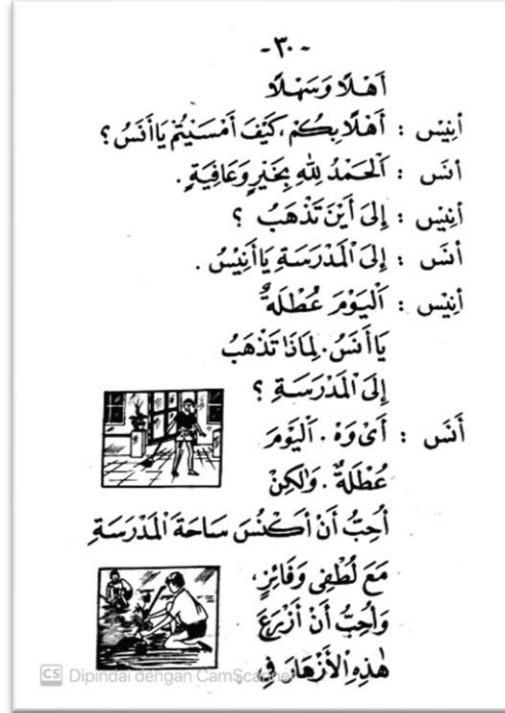 -٣٠-
أَهْلًا وَسَهْلًا
أنِيْس : أَهْلًا بِكُمْ، كَيْفَ أَمْسَيْتُمْ يَا أَنَسُ؟
أنَس : اَلْحَمْدُ لِلّٰهِ بِخَيْرٍ وَعَافِيَةٍ.
أنِيْس : إِلَى أَيْنَ تَذْهَبُ ؟
أنَس : إِلَى الْمَدْرَسَةِ يَا أَنِيْسُ .
أنِيْس : اَلْيَوْمَ عُطْلَةٌ
يَا أَنَسُ. لِمَاذَا تَذْهَبُ
إِلَى الْمَدْرَسَةِ ؟
أَنَس : أَىْ وَهْ . اَلْيَوْمَ
عُطْلَةٌ . وَلٰكِنْ
أُحِبُّ أَنْ أَكْنُسَ سَاحَةَ الْمَدْرَسَةِ
مَعَ لُطْفِى وَفَائِزٍ،
وَأُحِبُّ أَنْ أَزْرَعَ
هٰذِهِ الْأَزْهَارَ فِى
CS Dipindai dengan CamScanner